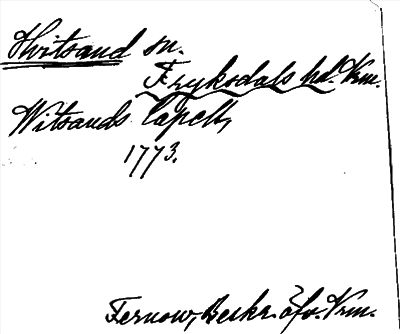 Hvitsand sn.
Fryksdals hd. Vrm.
Witsands Capell,
1773.
Fernow, Beskr. öfv. Vrm.